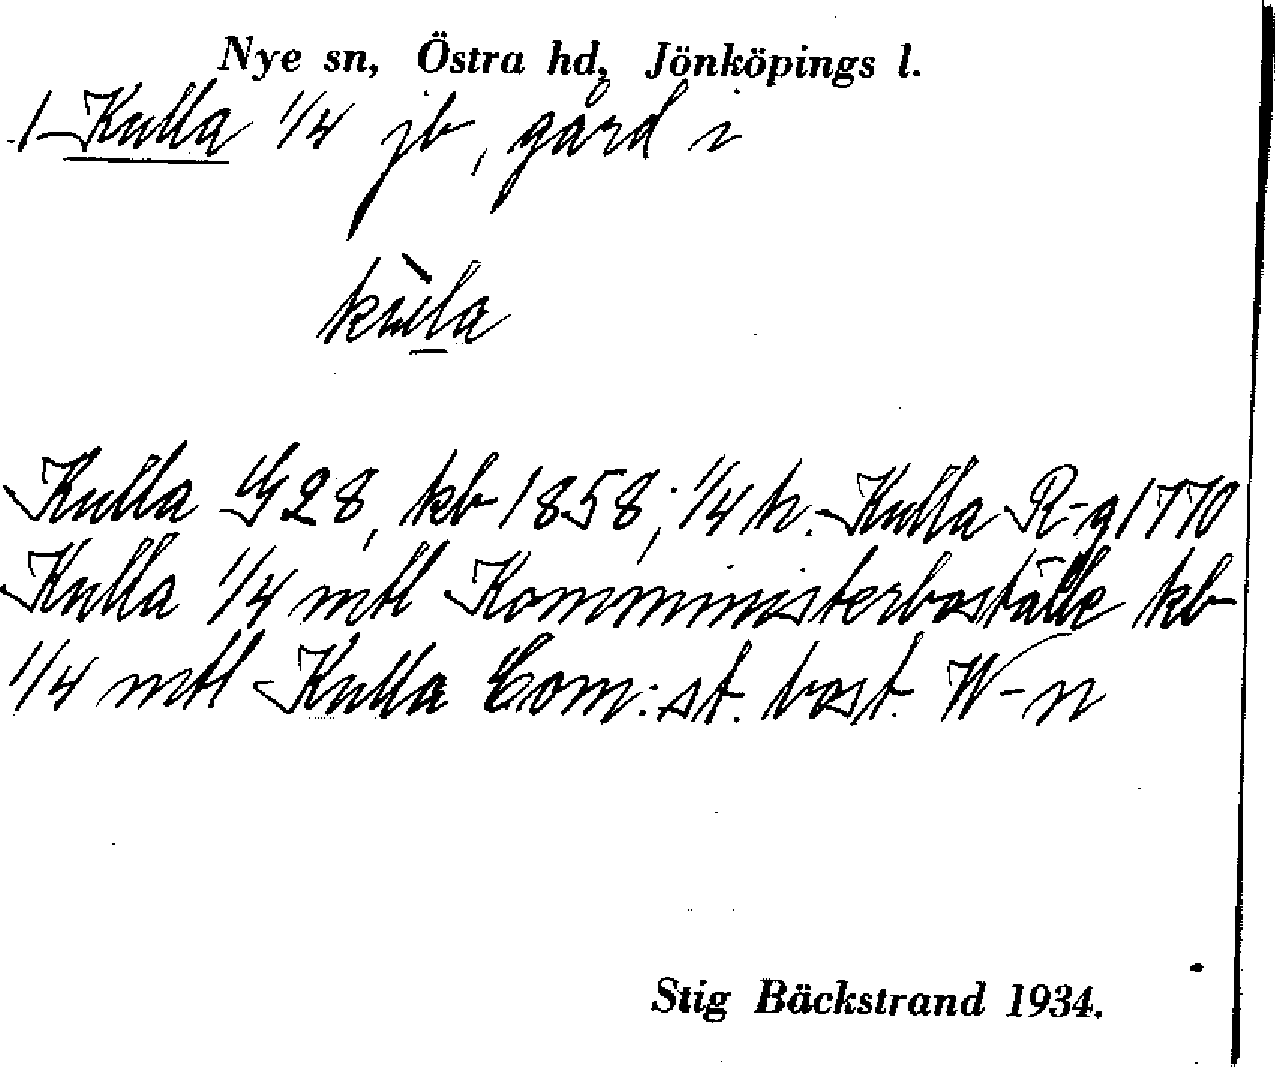 Nye sn, Östra hd, Jönköpings l.
1 Kulla 1/4 jb, gård i
kùla
Kulla G28, kb 1858; 1/4 h. Kulla R-g 1770
Kulla 1/4 mtl Komministerboställe kb
1/4 mtl Kulla Com:st. bost. W-n
Stig Bäckstrand 1934.